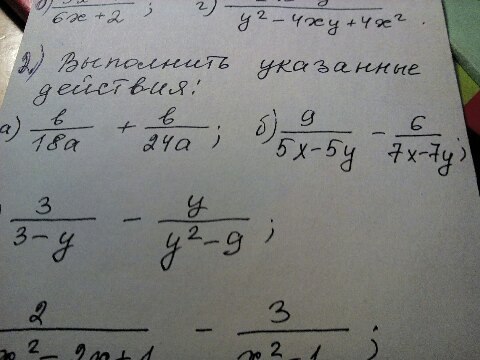 6x+2 ; г) y²-4xy+4x² .
2.) Выполнить указанные
действия:
а) в/18a + в/24a ; б) 9/5x-5y - 6/7x-7y ;
3/3-y - y/y²-9 ;
2/x²-2x+1 - 3/x²-1 ;